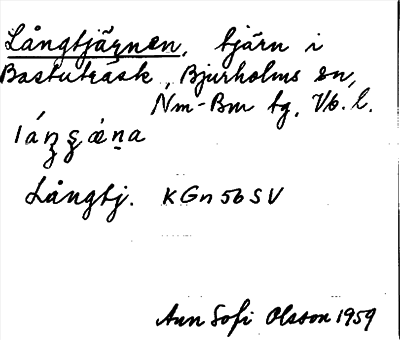 Långtjärnen, tjärn i
Bastuträsk, Bjurholms sn,
Nm-Bm tg. Vb. l.
Långtj. KGn 56 SV
Ann Sofi Olsson 1959